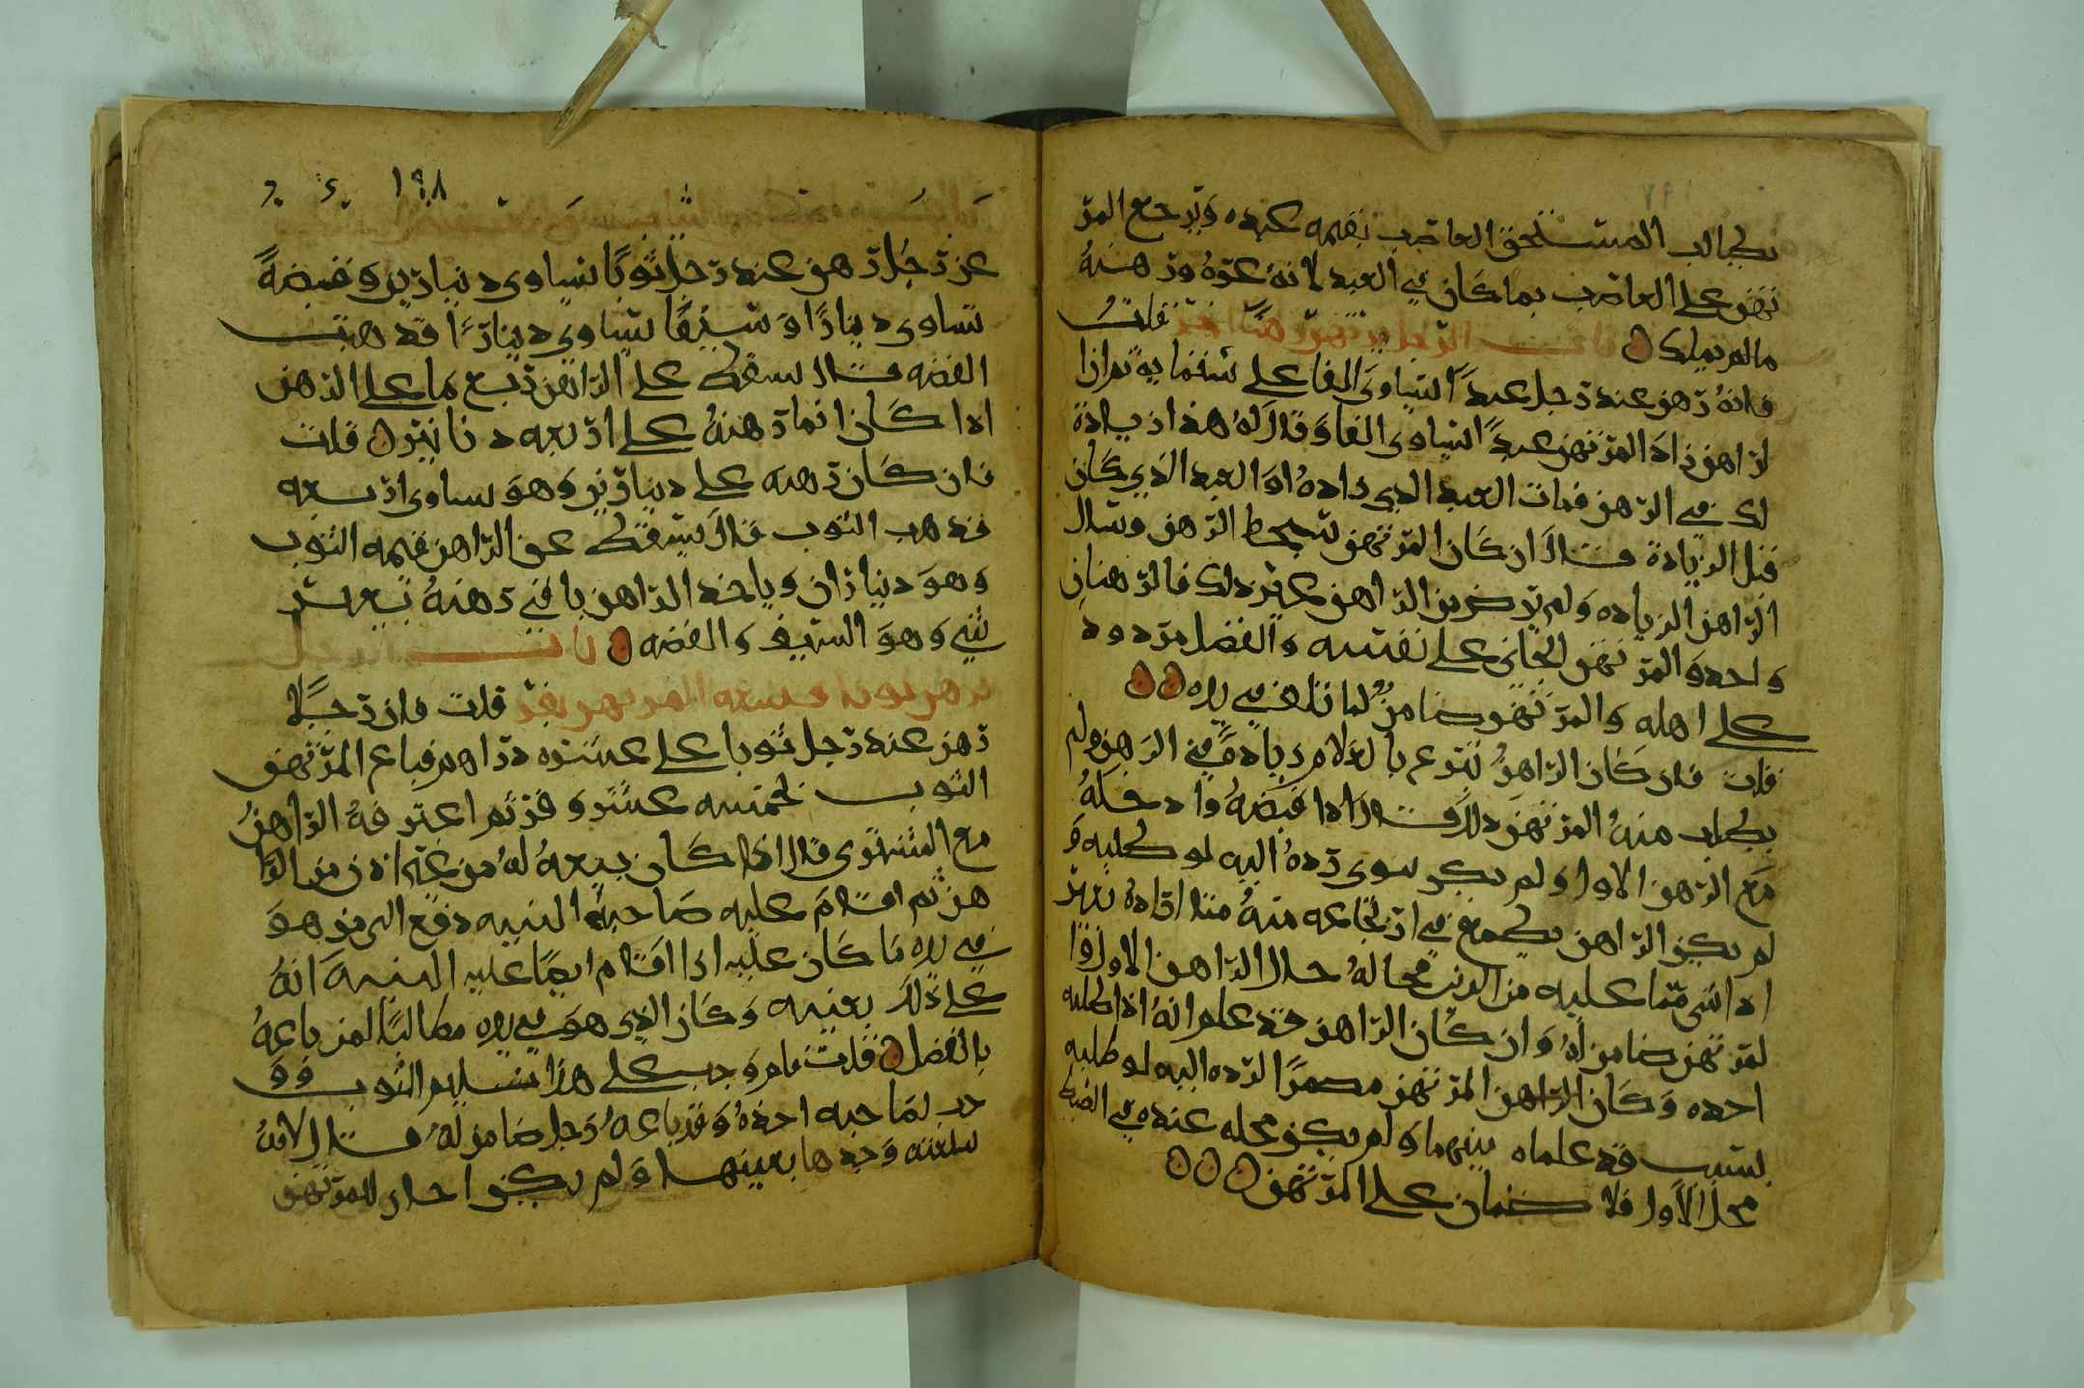 يطالب المستحق الغاصب بقيمة عبده ويرجع المر
تهن على الغاصب بما كان في العبد لانه غره ورهنه
مالم يملك باب الرجل يرتهن رهنا قلت
فانه رهن عند رجل عبدا يساوي الفا على
الراهن زاد المرتهن عبدا يساوي الفا وقال له هذا زيادة
لك في الرهن فمات العبد الذي زاده او العبد الذي كان
قبل الزيادة قال ان كان المرتهن الرهن وسال
الراهن الزيادة ولم الراهن ذلك فالرهنان
واحد والمرتهن على نفسه والفضل مردود
على اهله والمرتهن ضامن لما تلف في يده
قلت فان كان الراهن تبرع بالغلام زيادة في الرهن ولم
يطلب منه المرتهن ذلك قال اذا قبضه وادخله
مع الرهن الاول ولم يكن سوى رده اليه لو طلبه و
لم يكن الراهن يطمع في ارتجاعه منه متى اراده
على من الدين حال الراهن الاول فا
لمرتهن ضامن له وان كان الراهن قد علم انه اذا طلبه
اخذه وكان المرتهن مضمرا لرده اليه لو طلبه
بسبب قد علماه بينهما ولم يكن محله عنده في
محل الاول فلا ضمان على المرتهن
١٩٨
عن رجل رهن عند رجل ثوبا يساوي دينارين وفضة
تساوي دينارا وسيفا يساوي دينارا فذهبت
الفضة قال يسقط على الراهن ربع ما على الرهن
اذا كان انما رهنه على اربعة دنانير قلت
فان كان رهنه على دينارين وهو يساوي اربعة
فذهب الثوب قال يسقط عن الراهن قيمة الثوب
وهو ديناران وياخذ الراهن باقي رهنه بغير
شي وهو السيف والفضة باب الرجل
يرهن ثوبا فيبيعه المرتهن قلت فان رجلا
رهن عند رجل ثوبا على عشرة دراهم فباع المرتهن
الثوب بخمسة عشر ثم اعترفه الراهن
مع المشتري قال اذا كان بيعه له من غير اذن من الرا
هن ثم اقام عليه صاحبه البينة دفع الى من هو
في يده ما كان عليه اذا اقام ايضا عليه البينة انه
على ذلك بعينه وكان الذي هو في يده مطالبا لمن باعه
بالفضل قلت فلم وجب على هذا تسليم الثوب وو
جب لصاحبه اخذه وقد باعه رجل ضامن له قال لانه
سلعته وجدها بعينها ولم يكن للمرتهن